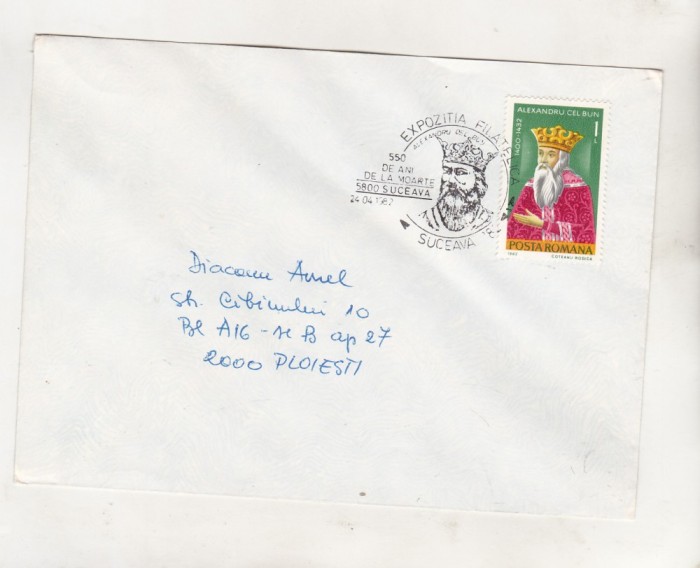 EXPOZITIA FILATELICA
ALEXANDRU CEL BUN
550
DE ANI
DE LA MOARTE
5800 SUCEAVA
24.04.1982
SUCEAVA
ALEXANDRU CEL BUN
1L
1400-1432
POSTA ROMANA
1982 COTEANU RODICA
Diaconu Aurel
str. Cibinului 10
Bl A16 - sc B ap 27
2000 PLOIEȘTI